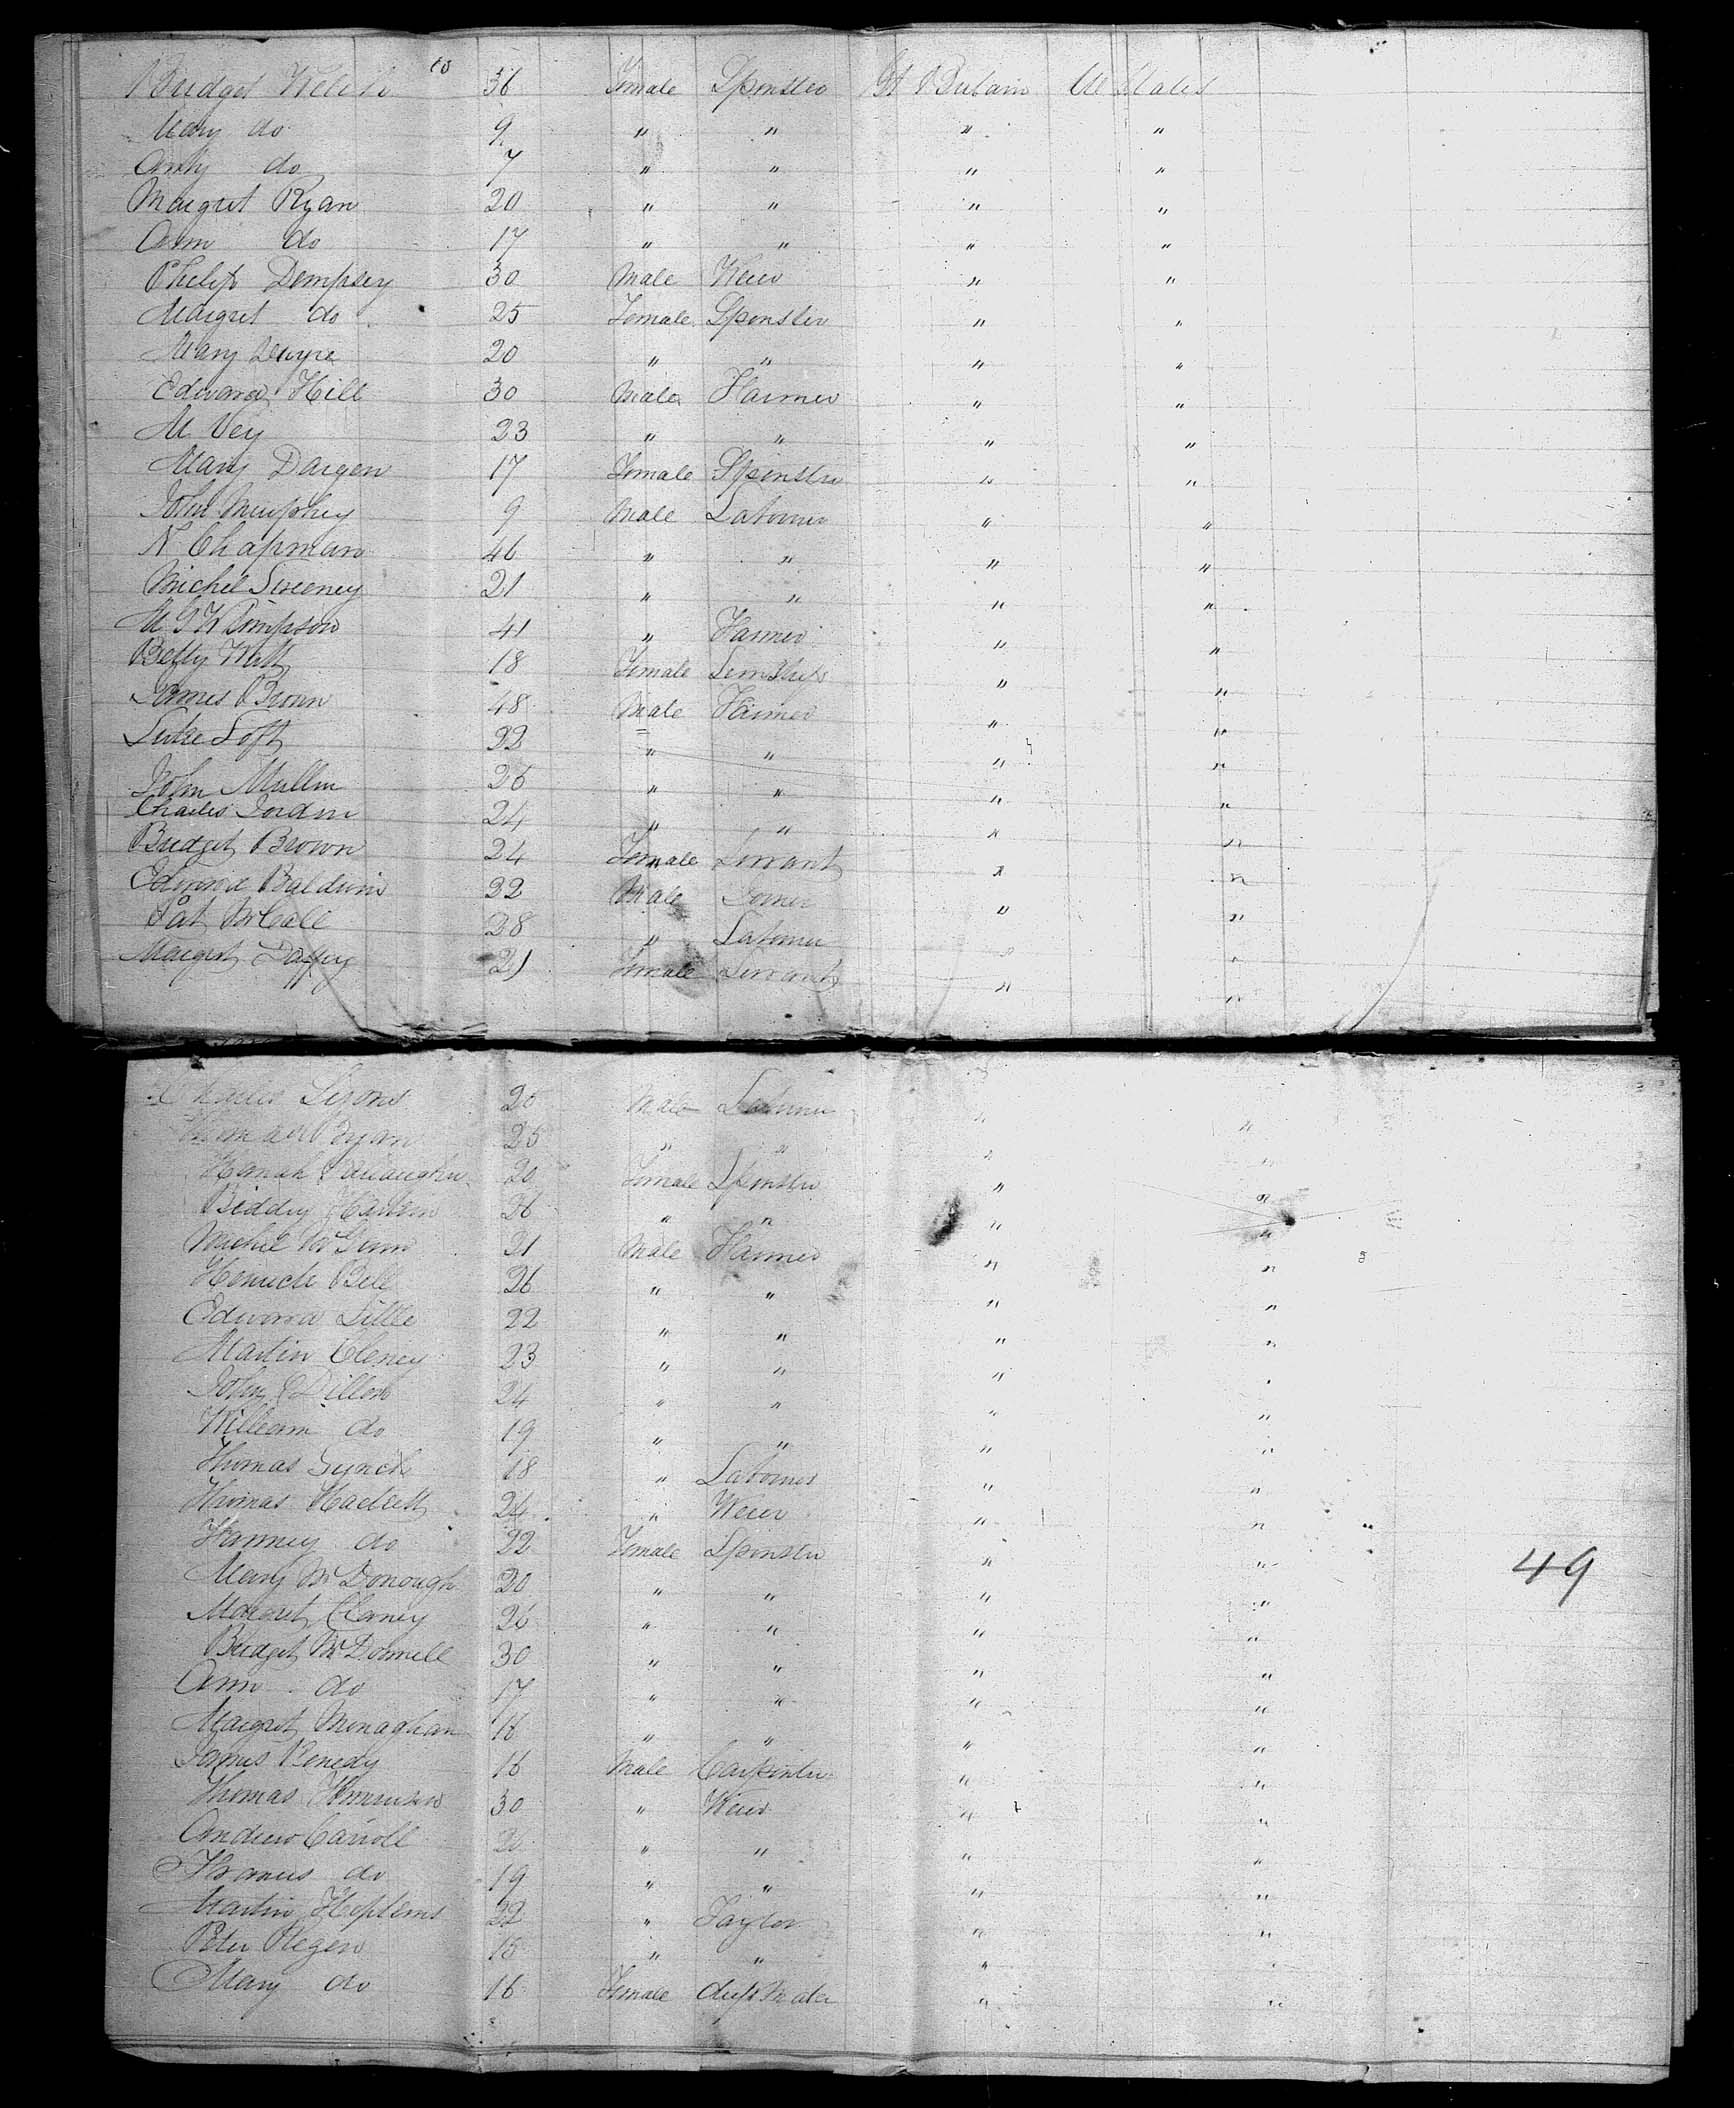 Bridget Welch 36 Female Spinster Gt Britain U States
Mary do 9 " " " "
Anty do 7 " " " "
Margret Ryan 20 " " " "
Ann do 17 " " " "
Philip Dempsey 30 Male Weier " "
Margret do 25 Female Spinster " "
Mary Dwyre 20 " " " "
Edward Hill 30 Male Farmer " "
M Vey 23 " " " "
Mary Dargen 17 Female Spinster " "
John Murphey 9 Male Laborer " "
N Chapman 46 " " " "
Michel Sweeney 21 " " " "
41 " Farmer " "
Betty Watt 18 Female " "
James Brown 48 Male Farmer " "
Luke Loft 22 " " " "
John Mullin 26 " " " "
Charles Jordin 24 " " " "
Bridget Brown 24 Female Servant " "
Edward Baldwin 22 Male " "
Pat McCall 28 " Laborer " "
Margret Daffey 21 Female Servant " "
Charles Lyons 20 Male Laborer " "
Thomas Ryan 25 " " " "
Hannah 20 Female Spinster " "
Biddey 26 " " " "
Michel McGinn 21 Male Farmer " "
Bell 26 " " " "
Edward Little 22 " " " "
Martin Cleney 23 " " " "
John Dillon 24 " " " "
William do 19 " " " "
Thomas Lynch 18 " Laborer " "
Thomas Hackett 24 " Weier " "
Hanney do 22 Female Spinster " "
49
Mary McDonough 20 " " " "
Margret Clarney 26 " " " "
Bridget McDonnell 30 " " " "
Ann do 17 " " " "
Margret Monaghan 16 " " " "
James Kenedy 16 Male Carpinter " "
Thomas 30 " Weier " "
Andrew Carroll 20 " " " "
Thomas do 19 " " " "
Martin 22 " Taylor " "
Peter Hegen 15 " " " "
Mary do 16 Female " "